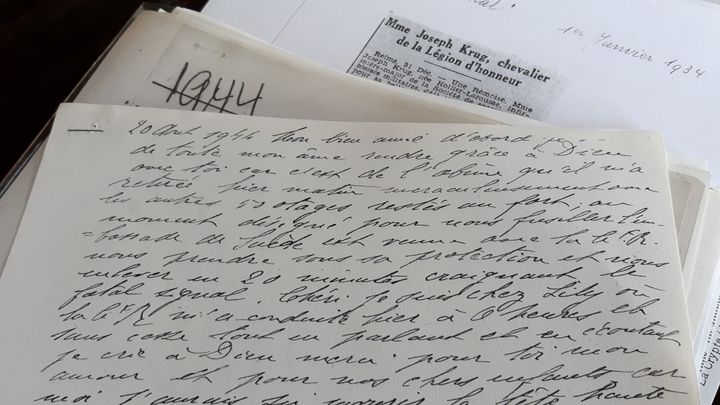 al.
1er Janvier 1934
Mme Joseph Krug, chevalier
de la Légion d'honneur
Reims, 31 Déc. — Une Rémoise, Mme
Joseph Krug, née Hollier-Larousse, infir-
mière-major de la Société de
1944
20 Août 1944 Mon bien aimé d'abord je
de toute mon âme rendre grâce à Dieu
avec toi car c'est de l'abîme qu'il m'a
retirée hier matin miraculeusement avec
les autres 53 otages restés au fort, au
moment désigné pour nous fusiller l'am-
bassade de Suède est venue avec la C.R.
nous prendre sous sa protection et nous
enlever en 20 minutes craignant le
fatal signal. Chéri je suis chez Lily où
la C.R. m'a conduite hier à 6 heures et
sans cesse tout en parlant et en écoutant
je crie à Dieu merci pour toi mon
amour et pour nos chers enfants car
moi j'aurais su mourir la tête haute
La Crypte